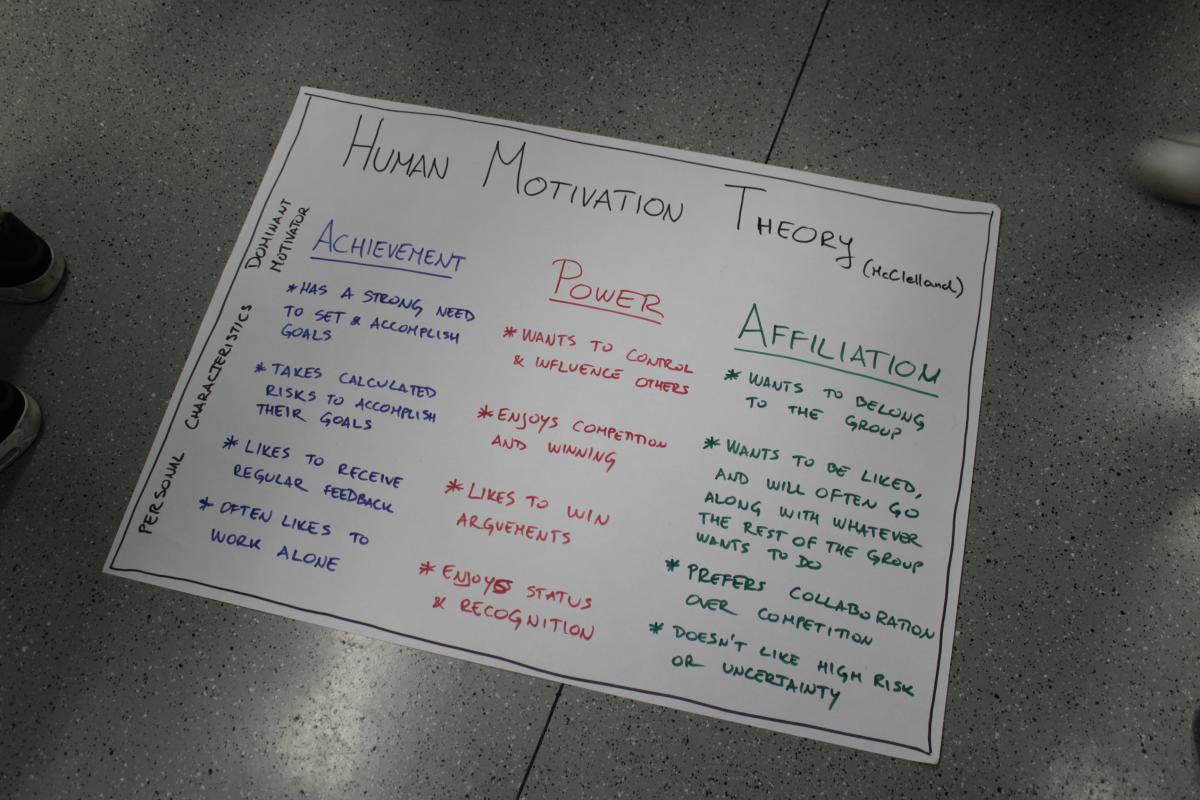 HUMAN MOTIVATION THEORY
(McClelland)
DOMINANT
MOTIVATOR
PERSONAL CHARACTERISTICS
ACHIEVEMENT
* HAS A STRONG NEED
TO SET & ACCOMPLISH
GOALS
* TAKES CALCULATED
RISKS TO ACCOMPLISH
THEIR GOALS
* LIKES TO RECEIVE
REGULAR FEEDBACK
* OFTEN LIKES TO
WORK ALONE
POWER
* WANTS TO CONTROL
& INFLUENCE OTHERS
* ENJOYS COMPETITION
AND WINNING
* LIKES TO WIN
ARGUEMENTS
* ENJOYS STATUS
& RECOGNITION
AFFILIATION
* WANTS TO BELONG
TO THE GROUP
* WANTS TO BE LIKED,
AND WILL OFTEN GO
ALONG WITH WHATEVER
THE REST OF THE GROUP
WANTS TO DO
* PREFERS COLLABORATION
OVER COMPETITION
* DOESN'T LIKE HIGH RISK
OR UNCERTAINTY